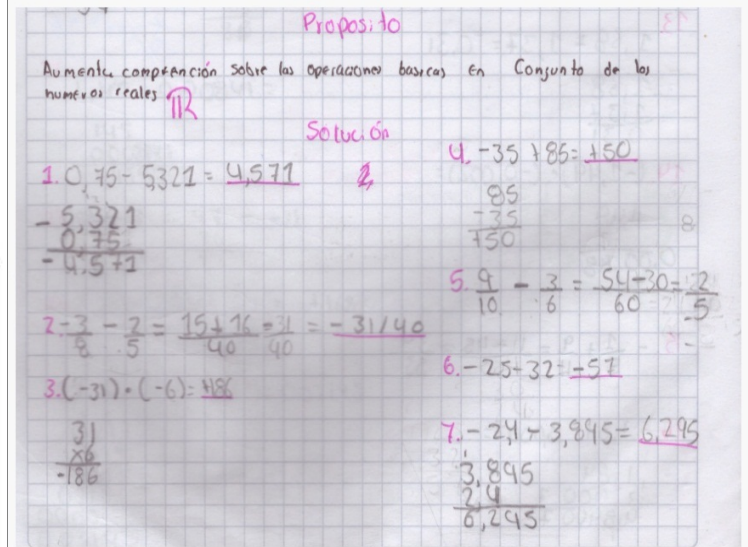 Proposito
Aumente comprención sobre las operaciones basicas en Conjunto de los
numeros reales ℝ
Solución
1. 0,75 - 5,321 = 4,571
- 5,321
0,75
- 4,571
2. -3/8 - 2/5 = 15+16/40 = 31/40 = -31/40
3. (-31) · (-6) = +186
31
x6
-186
4. -35 + 85 = +50
85
-35
+50
5. 9/10 - 3/6 = 54-30/60 = 2/5
6. -25-32 = -57
7. -2,4 - 3,895 = 6,295
3,895
2,4
6,295